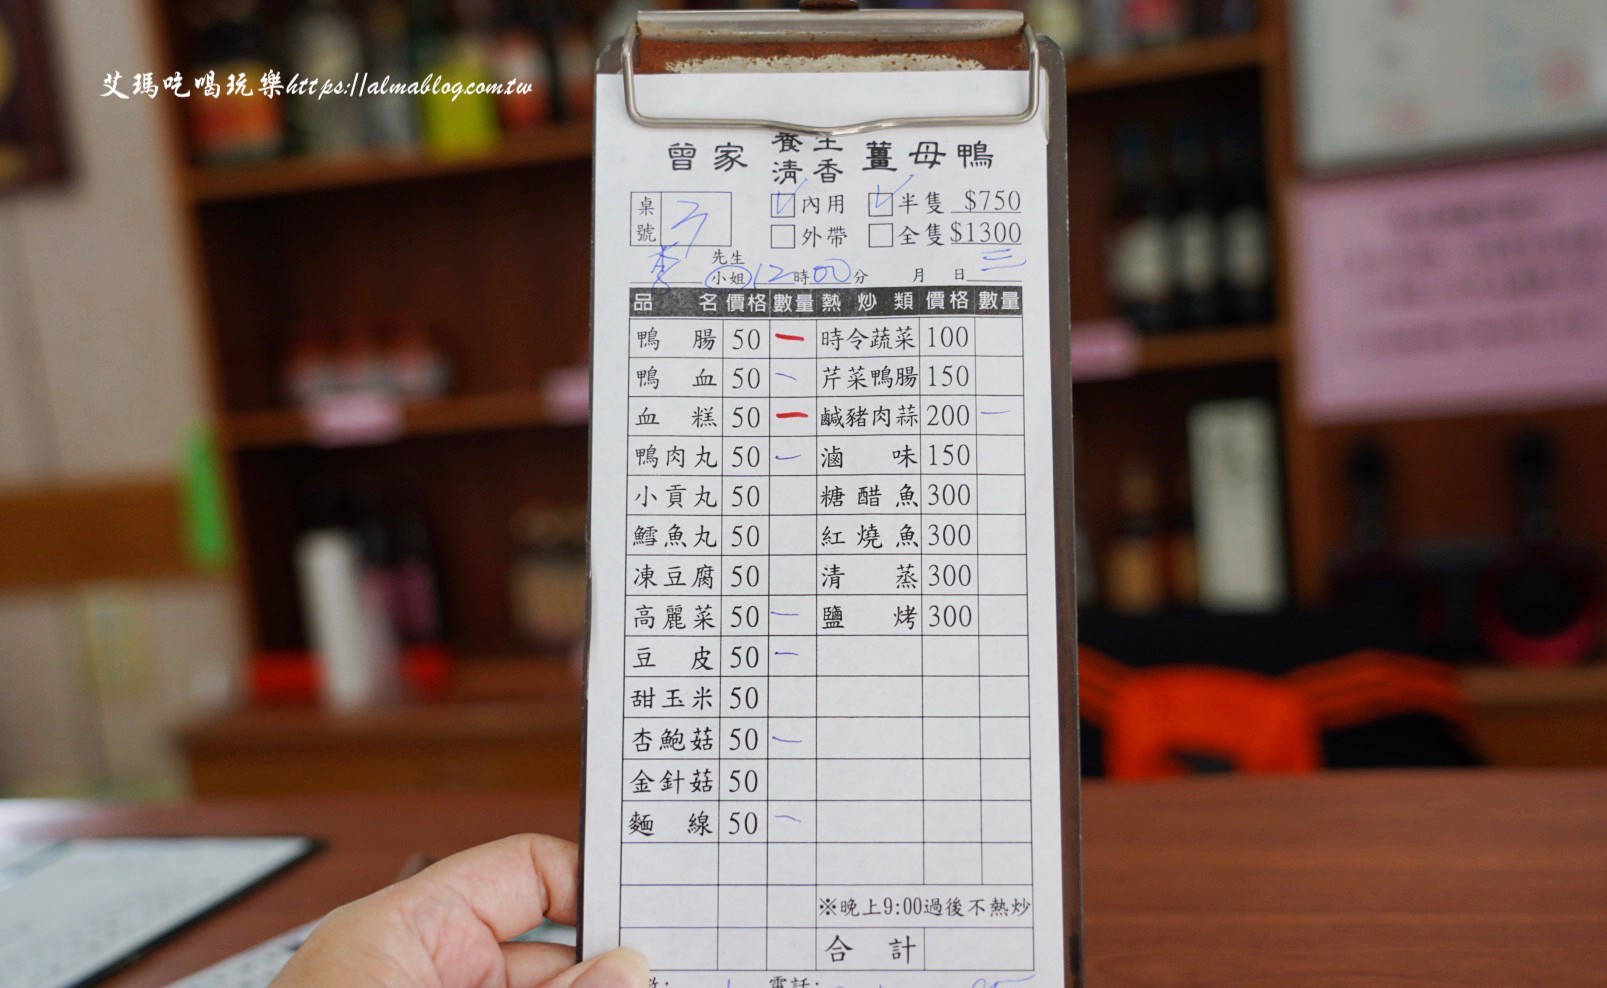 艾瑪吃喝玩樂https://almablog.com.tw
曾家 養生清香 薑母鴨
桌號 內用 半隻 $750
外帶 全隻 $1300
李 先生
小姐 12時00分 月 日 三
品名 價格 數量 熱炒類 價格 數量
鴨腸 50 一 時令蔬菜 100
鴨血 50 一 芹菜鴨腸 150
血糕 50 一 鹹豬肉蒜 200 一
鴨肉丸 50 一 滷味 150
小貢丸 50 糖醋魚 300
鱈魚丸 50 紅燒魚 300
凍豆腐 50 清蒸 300
高麗菜 50 一 鹽烤 300
豆皮 50 一
甜玉米 50
杏鮑菇 50 一
金針菇 50
麵線 50 一
※晚上9:00過後不熱炒
合計
電話: